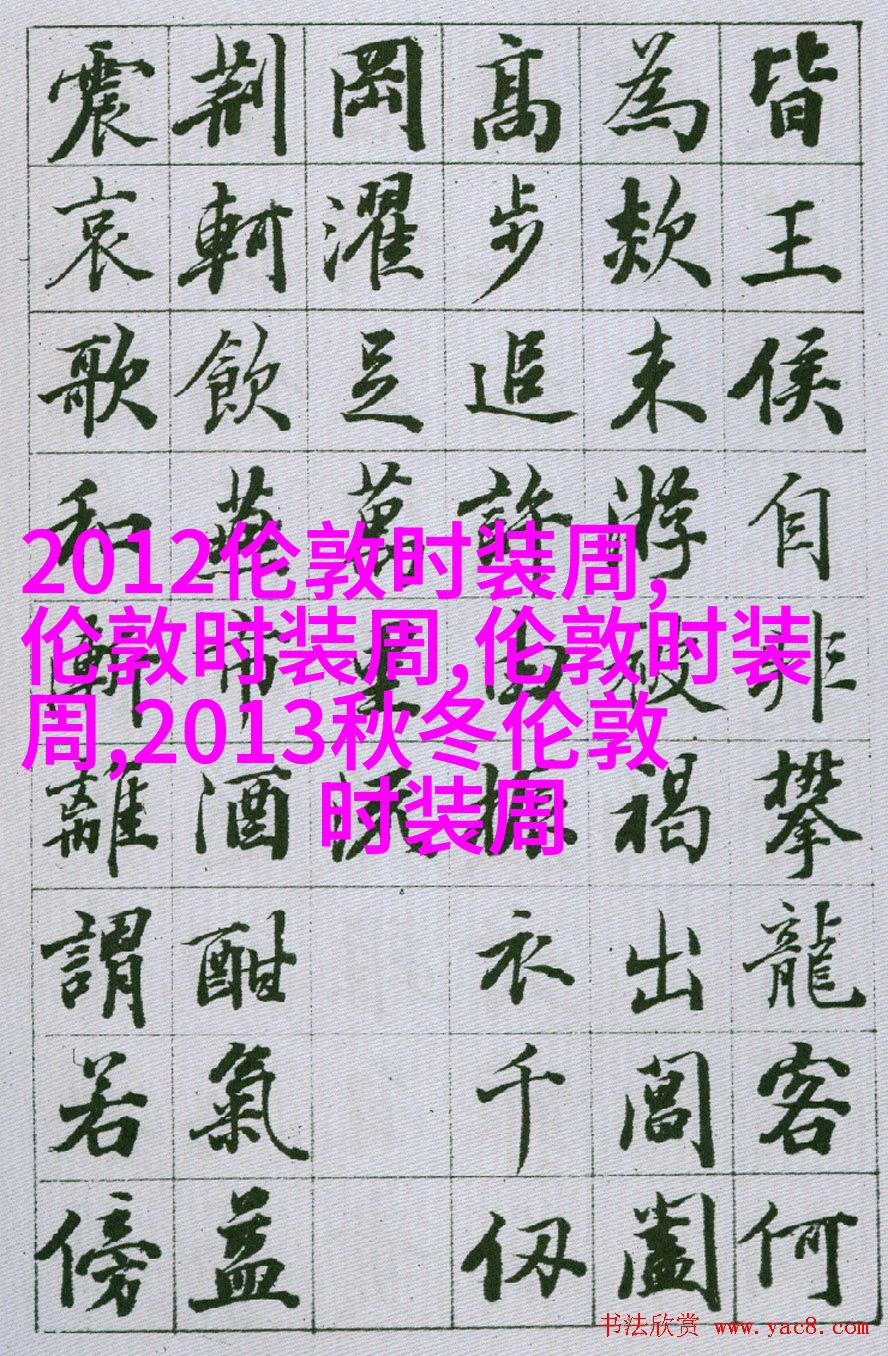 皆王侯自非攀龍客何
為欻来游被褐出閶闔
高步追許由振衣千仞
岡濯足萬里流
荊軻飲燕市酒酣氣益
震哀歌和漸離謂若傍
2012伦敦时装周,
伦敦时装周,伦敦时装
周,2013秋冬伦敦
时装周
书法欣赏 www.yac8.com